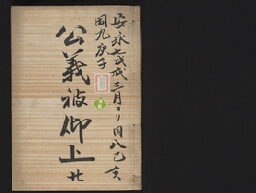 安永七戊戌三月ヨリ同八己亥
同九庚子
公義被仰上